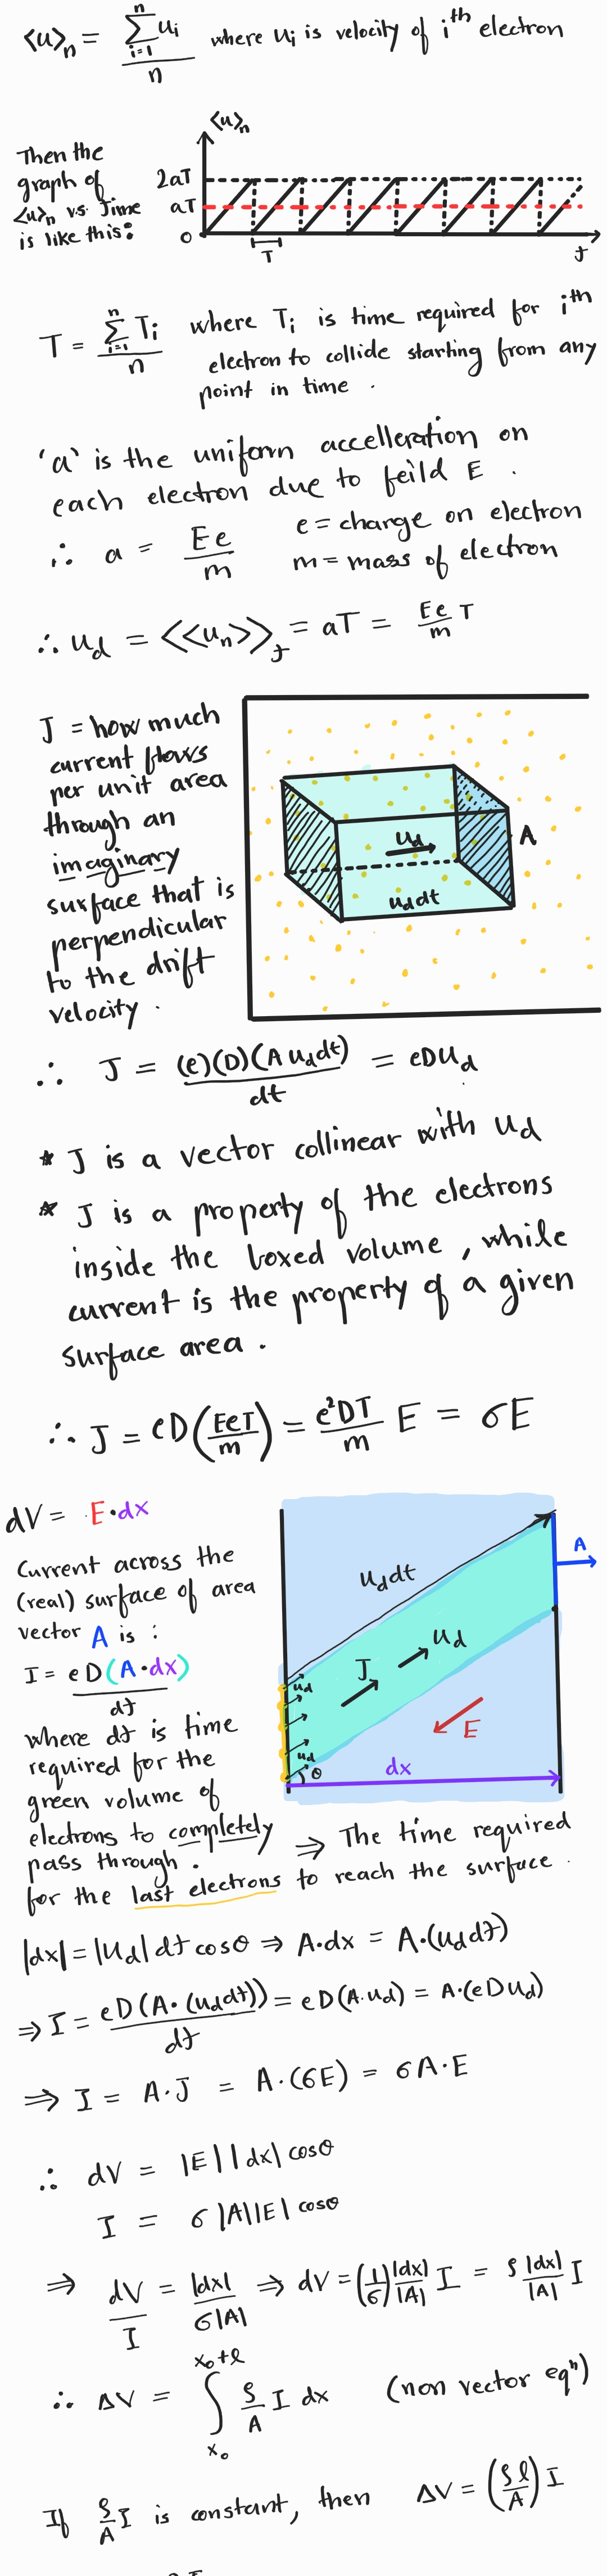 <u>n = ∑ i=1 n ui / n where ui is velocity of ith electron
<u>n
Then the
graph of
<u>n v.s. Time
is like this:
2aT
aT
0
T
t
T = ∑ i=1 n Ti / n where Ti is time required for ith
electron to collide starting from any
point in time .
'a' is the uniform accelleration on
each electron due to feild E .
∴ a = Ee / m e = charge on electron
m = mass of electron
∴ ud = <<un>>t = aT = Ee/m T
J = how much
current flows
per unit area
through an
imaginary
surface that is
perpendicular
to the drift
velocity .
ud
A
uddt
∴ J = (e)(D)(A uddt) / dt = eDud
* J is a vector collinear with ud
* J is a property of the electrons
inside the boxed volume , while
current is the property of a given
surface area .
∴ J = eD(EeT/m) = e²DT/m E = σE
dV = E·dx
Current across the
(real) surface of area
vector A is :
I = eD(A·dx) / dt
where dt is time
required for the
green volume of
electrons to completely
pass through . ⇒ The time required
for the last electrons to reach the surface .
uddt
A
ud
J
ud
E
ud
θ
dx
|dx| = |ud| dt cosθ ⇒ A·dx = A·(uddt)
⇒ I = eD(A·(uddt)) / dt = eD(A·ud) = A·(eDud)
⇒ I = A·J = A·(σE) = σA·E
∴ dV = |E||dx| cosθ
I = σ|A||E| cosθ
⇒ dV / I = |dx| / σ|A| ⇒ dV = (1/σ) |dx|/|A| I = ρ |dx|/|A| I
∴ ΔV = ∫ x₀ x₀+l ρ/A I dx (non vector eqn)
If ρ/A I is constant, then ΔV = (ρl/A) I